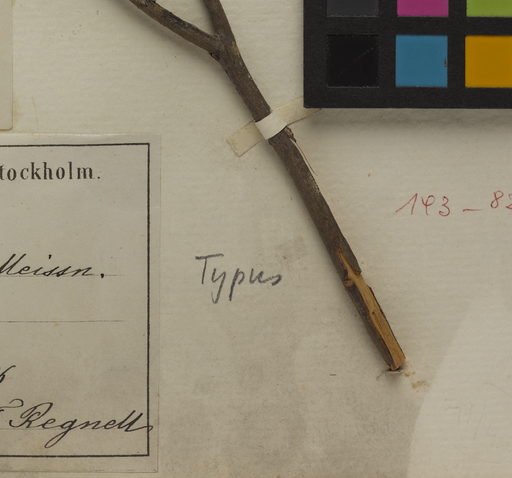 tockholm.
Meissn.
Typus
143-82
Regnell